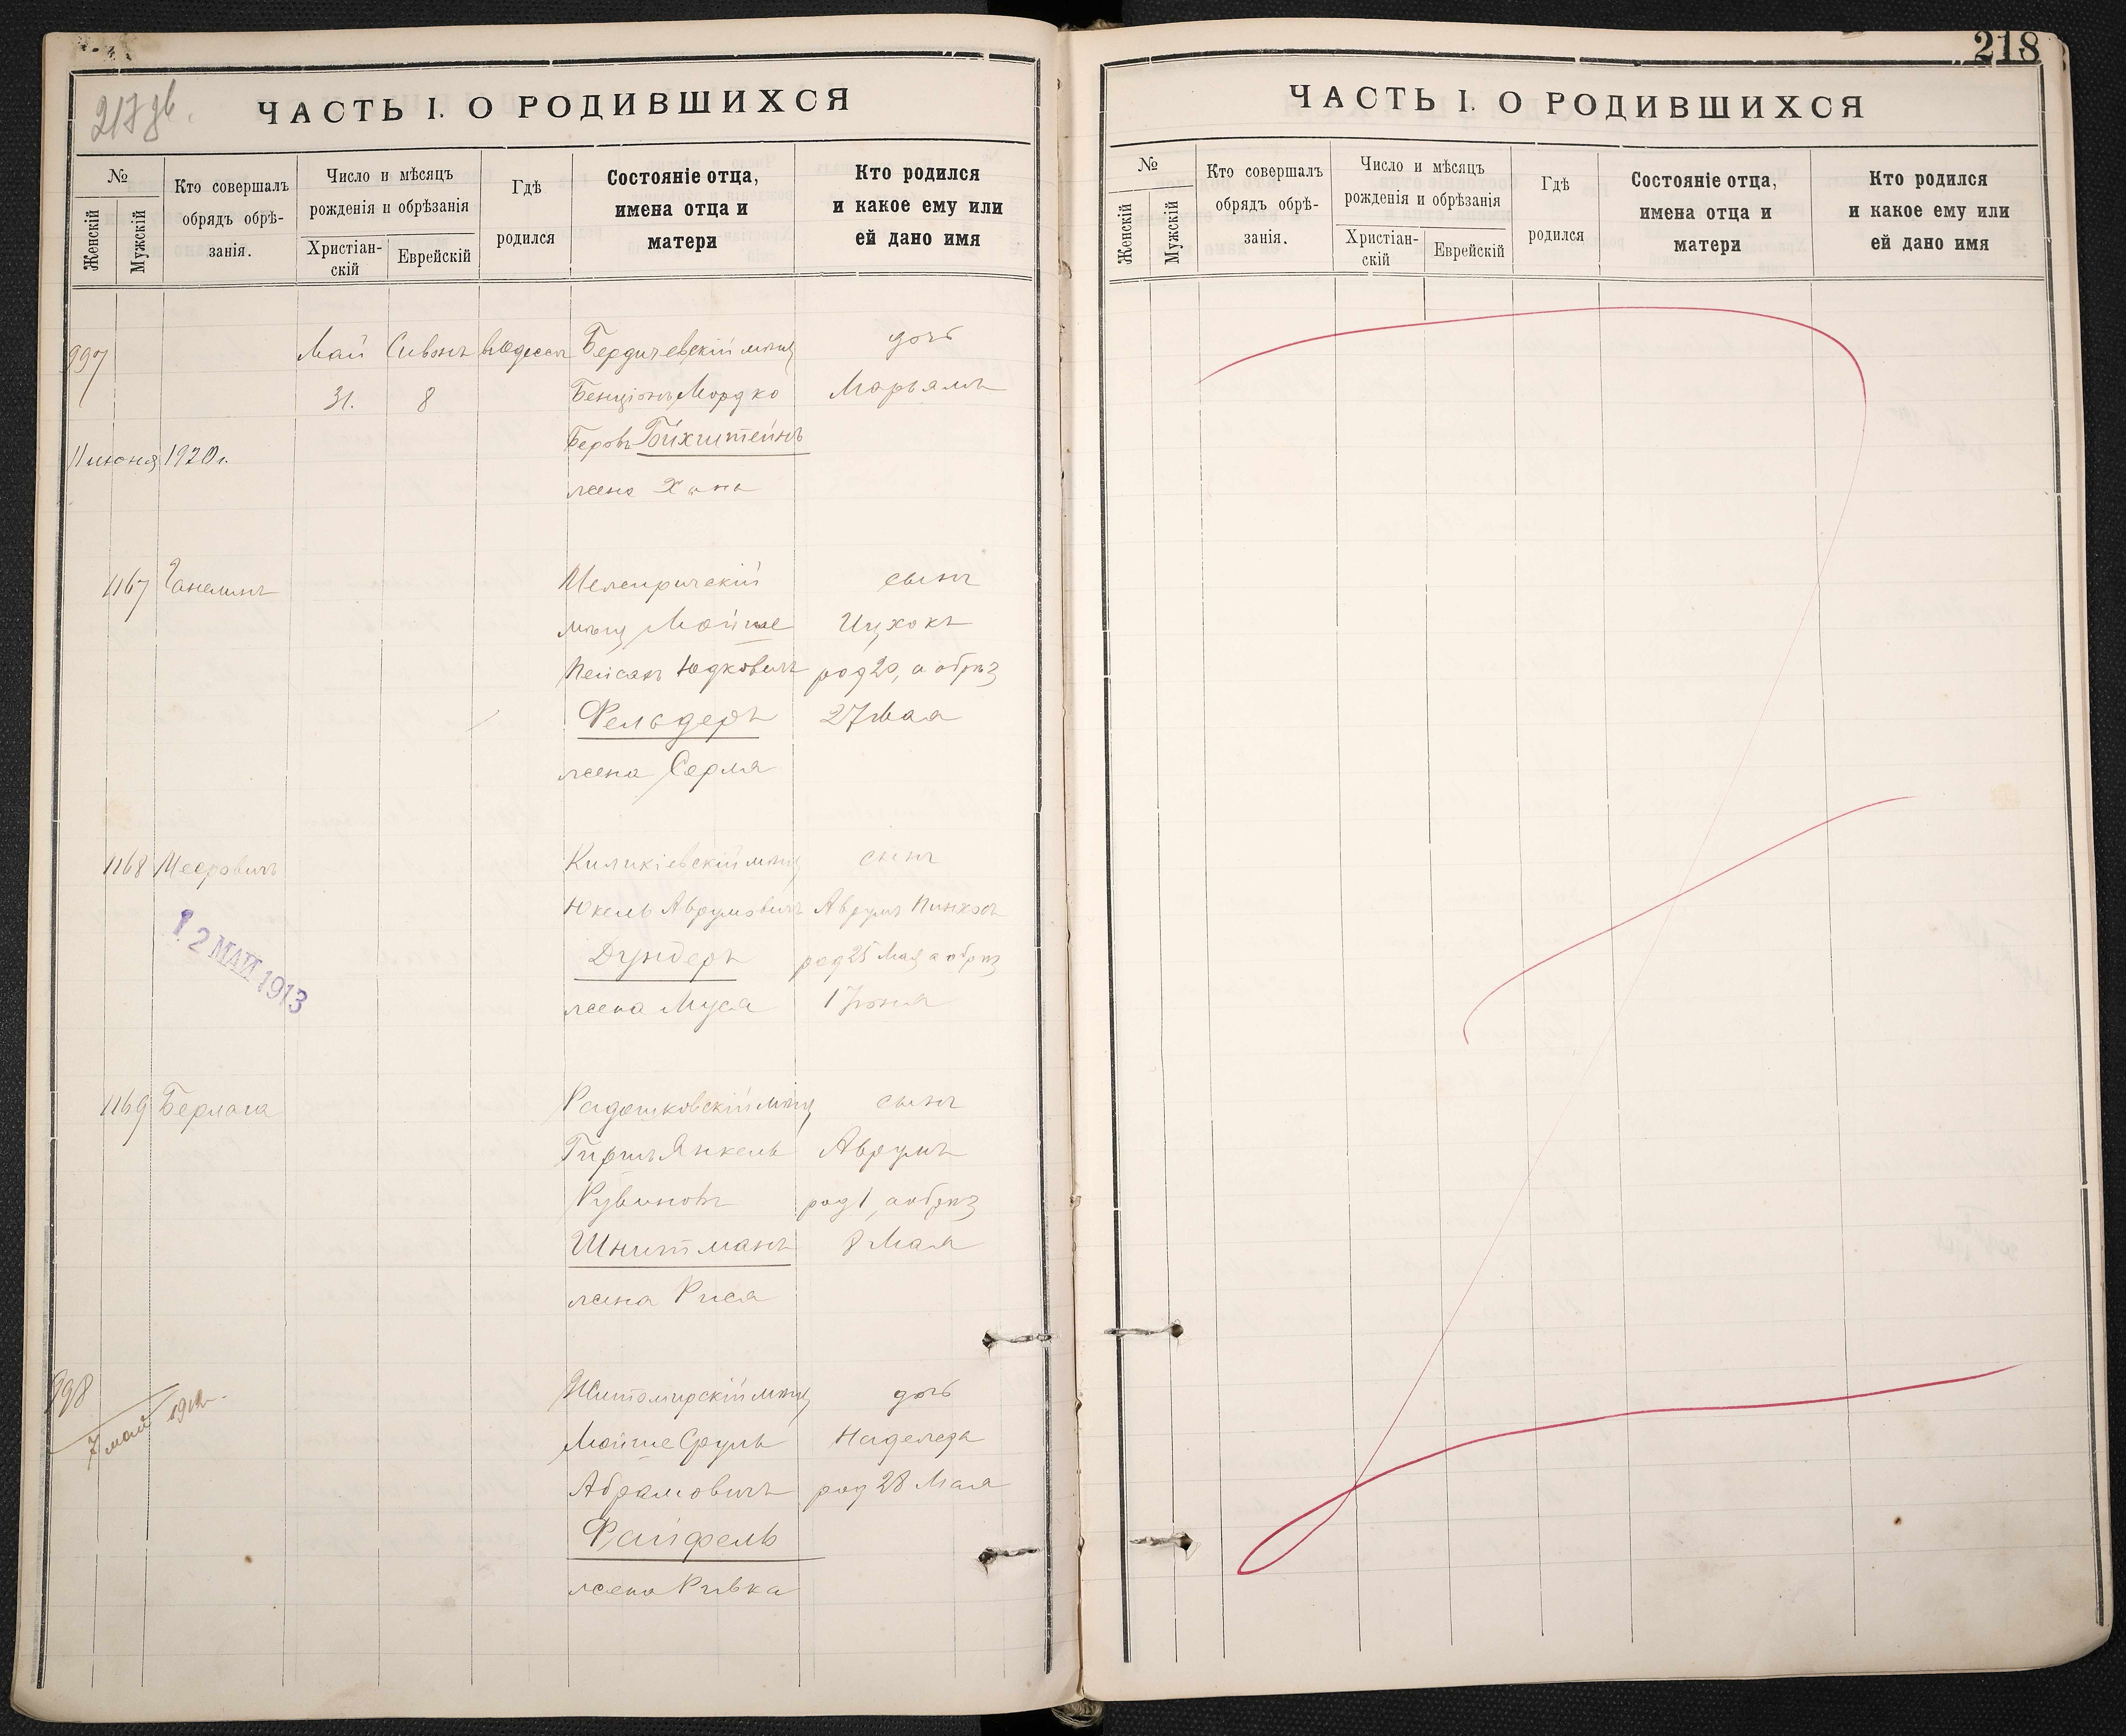 217 об.
ЧАСТЬ I. О РОДИВШИХСЯ
№
Женскій
Мужскій
Кто совершалъ
обрядъ обрѣ-
занія.
Число и мѣсяцъ
рожденія и обрѣзанія
Христіан-
скій
Еврейскій
Гдѣ
родился
Состояніе отца,
имена отца и
матери
Кто родился
и какое ему или
ей дано имя
997 Май Сивонъ въ Одессѣ Бердичевскій мѣщ дочь
31. 8 Бенціонъ Мордко Марьямъ
Беровъ
11 июня 1920 г.
жена Хана
1167 Ганелинъ сынъ
мѣщ Мойше Ицхокъ
Пейсахъ Юдковичъ род 20, а обрѣз
Фельдеръ 27 Мая
жена
1168 мѣщ сынъ
Юкель Аврумовичъ Аврумъ Пинхосъ
12 МАЙ 1913
Дундеръ род 25 Мая а обрѣз
жена Муся 1 Іюня
1169 Берлага Радошковскій мѣщ сынъ
Гиршъ Янкель Аврумъ
Рувиновъ род 1, а обрѣз
Шнитманъ 8 Мая
жена Рися
998 Житомирскій мѣщ дочь
7 май 1912
Мойше Сруль Надежда
Абрамовичъ род 28 Мая
Файфель
жена Ривка
218
ЧАСТЬ I. О РОДИВШИХСЯ
№
Женскій
Мужскій
Кто совершалъ
обрядъ обрѣ-
занія.
Число и мѣсяцъ
рожденія и обрѣзанія
Христіан-
скій
Еврейскій
Гдѣ
родился
Состояніе отца,
имена отца и
матери
Кто родился
и какое ему или
ей дано имя